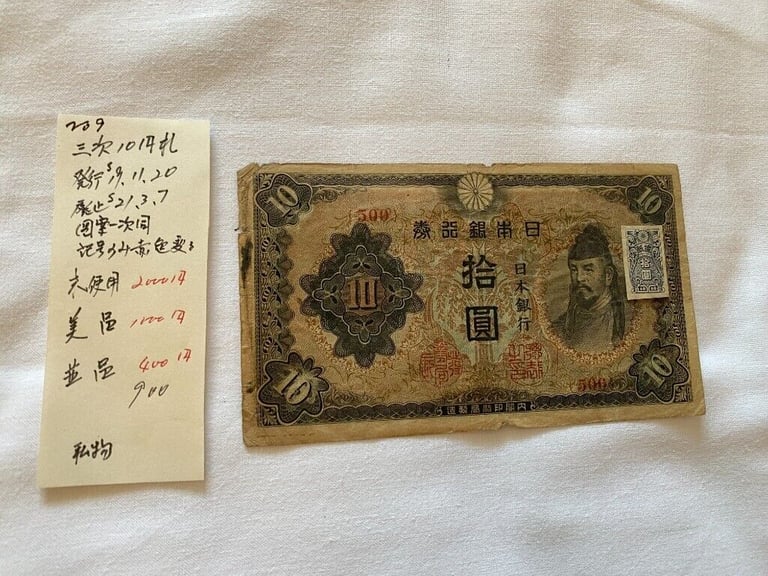 209
三次10円札
発行S19.11.20
廃止S21.3.7
図案一次同
記号のみ赤色変る
未使用 2000円
美品 1000円
並品 400円
900
私物
10
10
(500)
券行銀本日
拾圓
日本銀行
10
拾圓
(500)
10
10
造製局刷印閣内